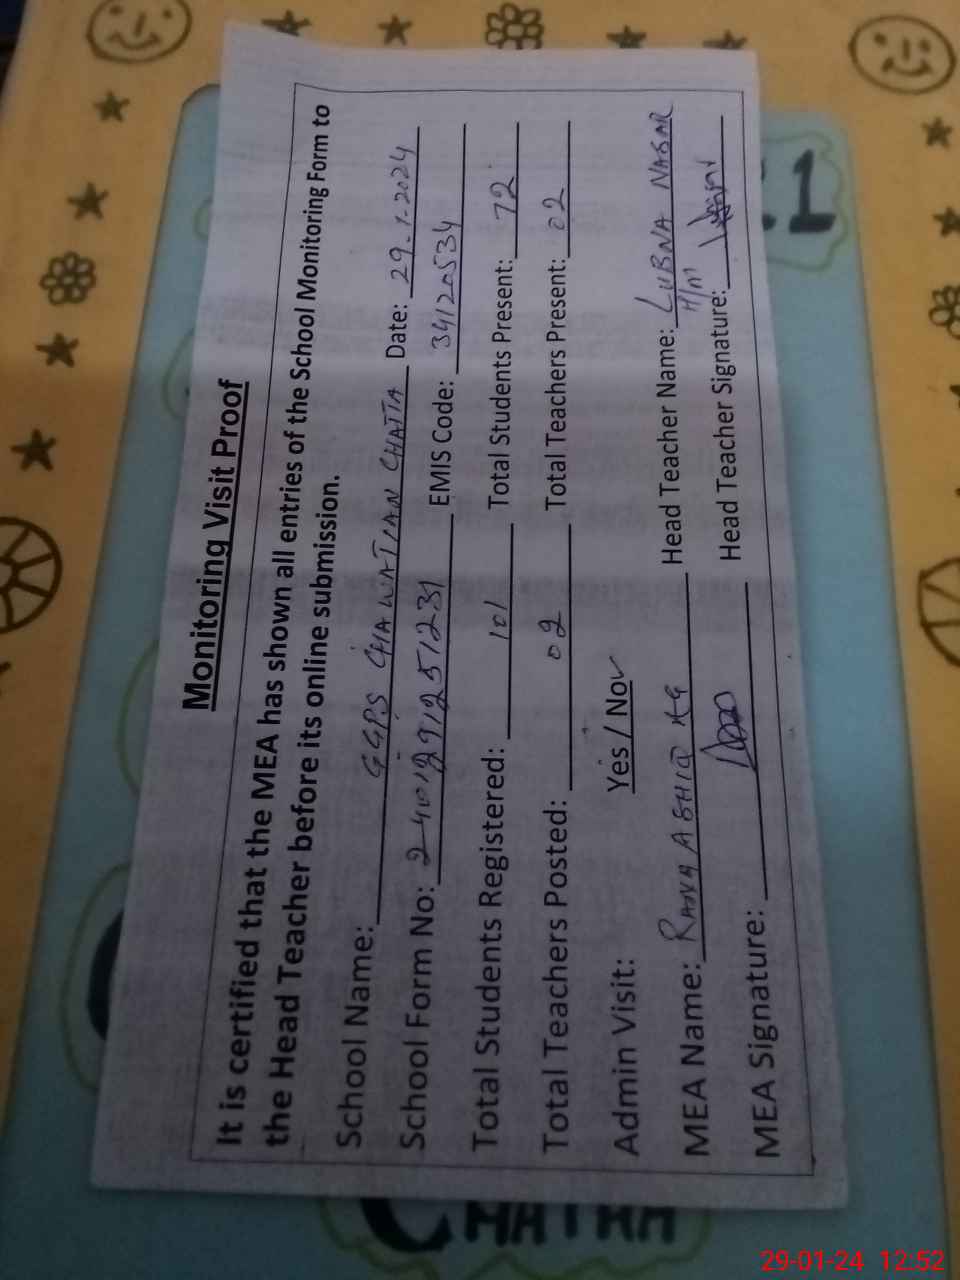 Monitoring Visit Proof
It is certified that the MEA has shown all entries of the School Monitoring Form to
the Head Teacher before its online submission.
School Name: GGPS CHAWATIAN CHATTA Date: 29-1-2024
School Form No: EMIS Code: 34120534
Total Students Registered: 101 Total Students Present: 72
Total Teachers Posted: 02 Total Teachers Present: 02
Admin Visit: Yes / No✓
MEA Name: RANA ABHID Head Teacher Name: LUBNA NASAR
H/M
MEA Signature: Head Teacher Signature:
29-01-24 12:52